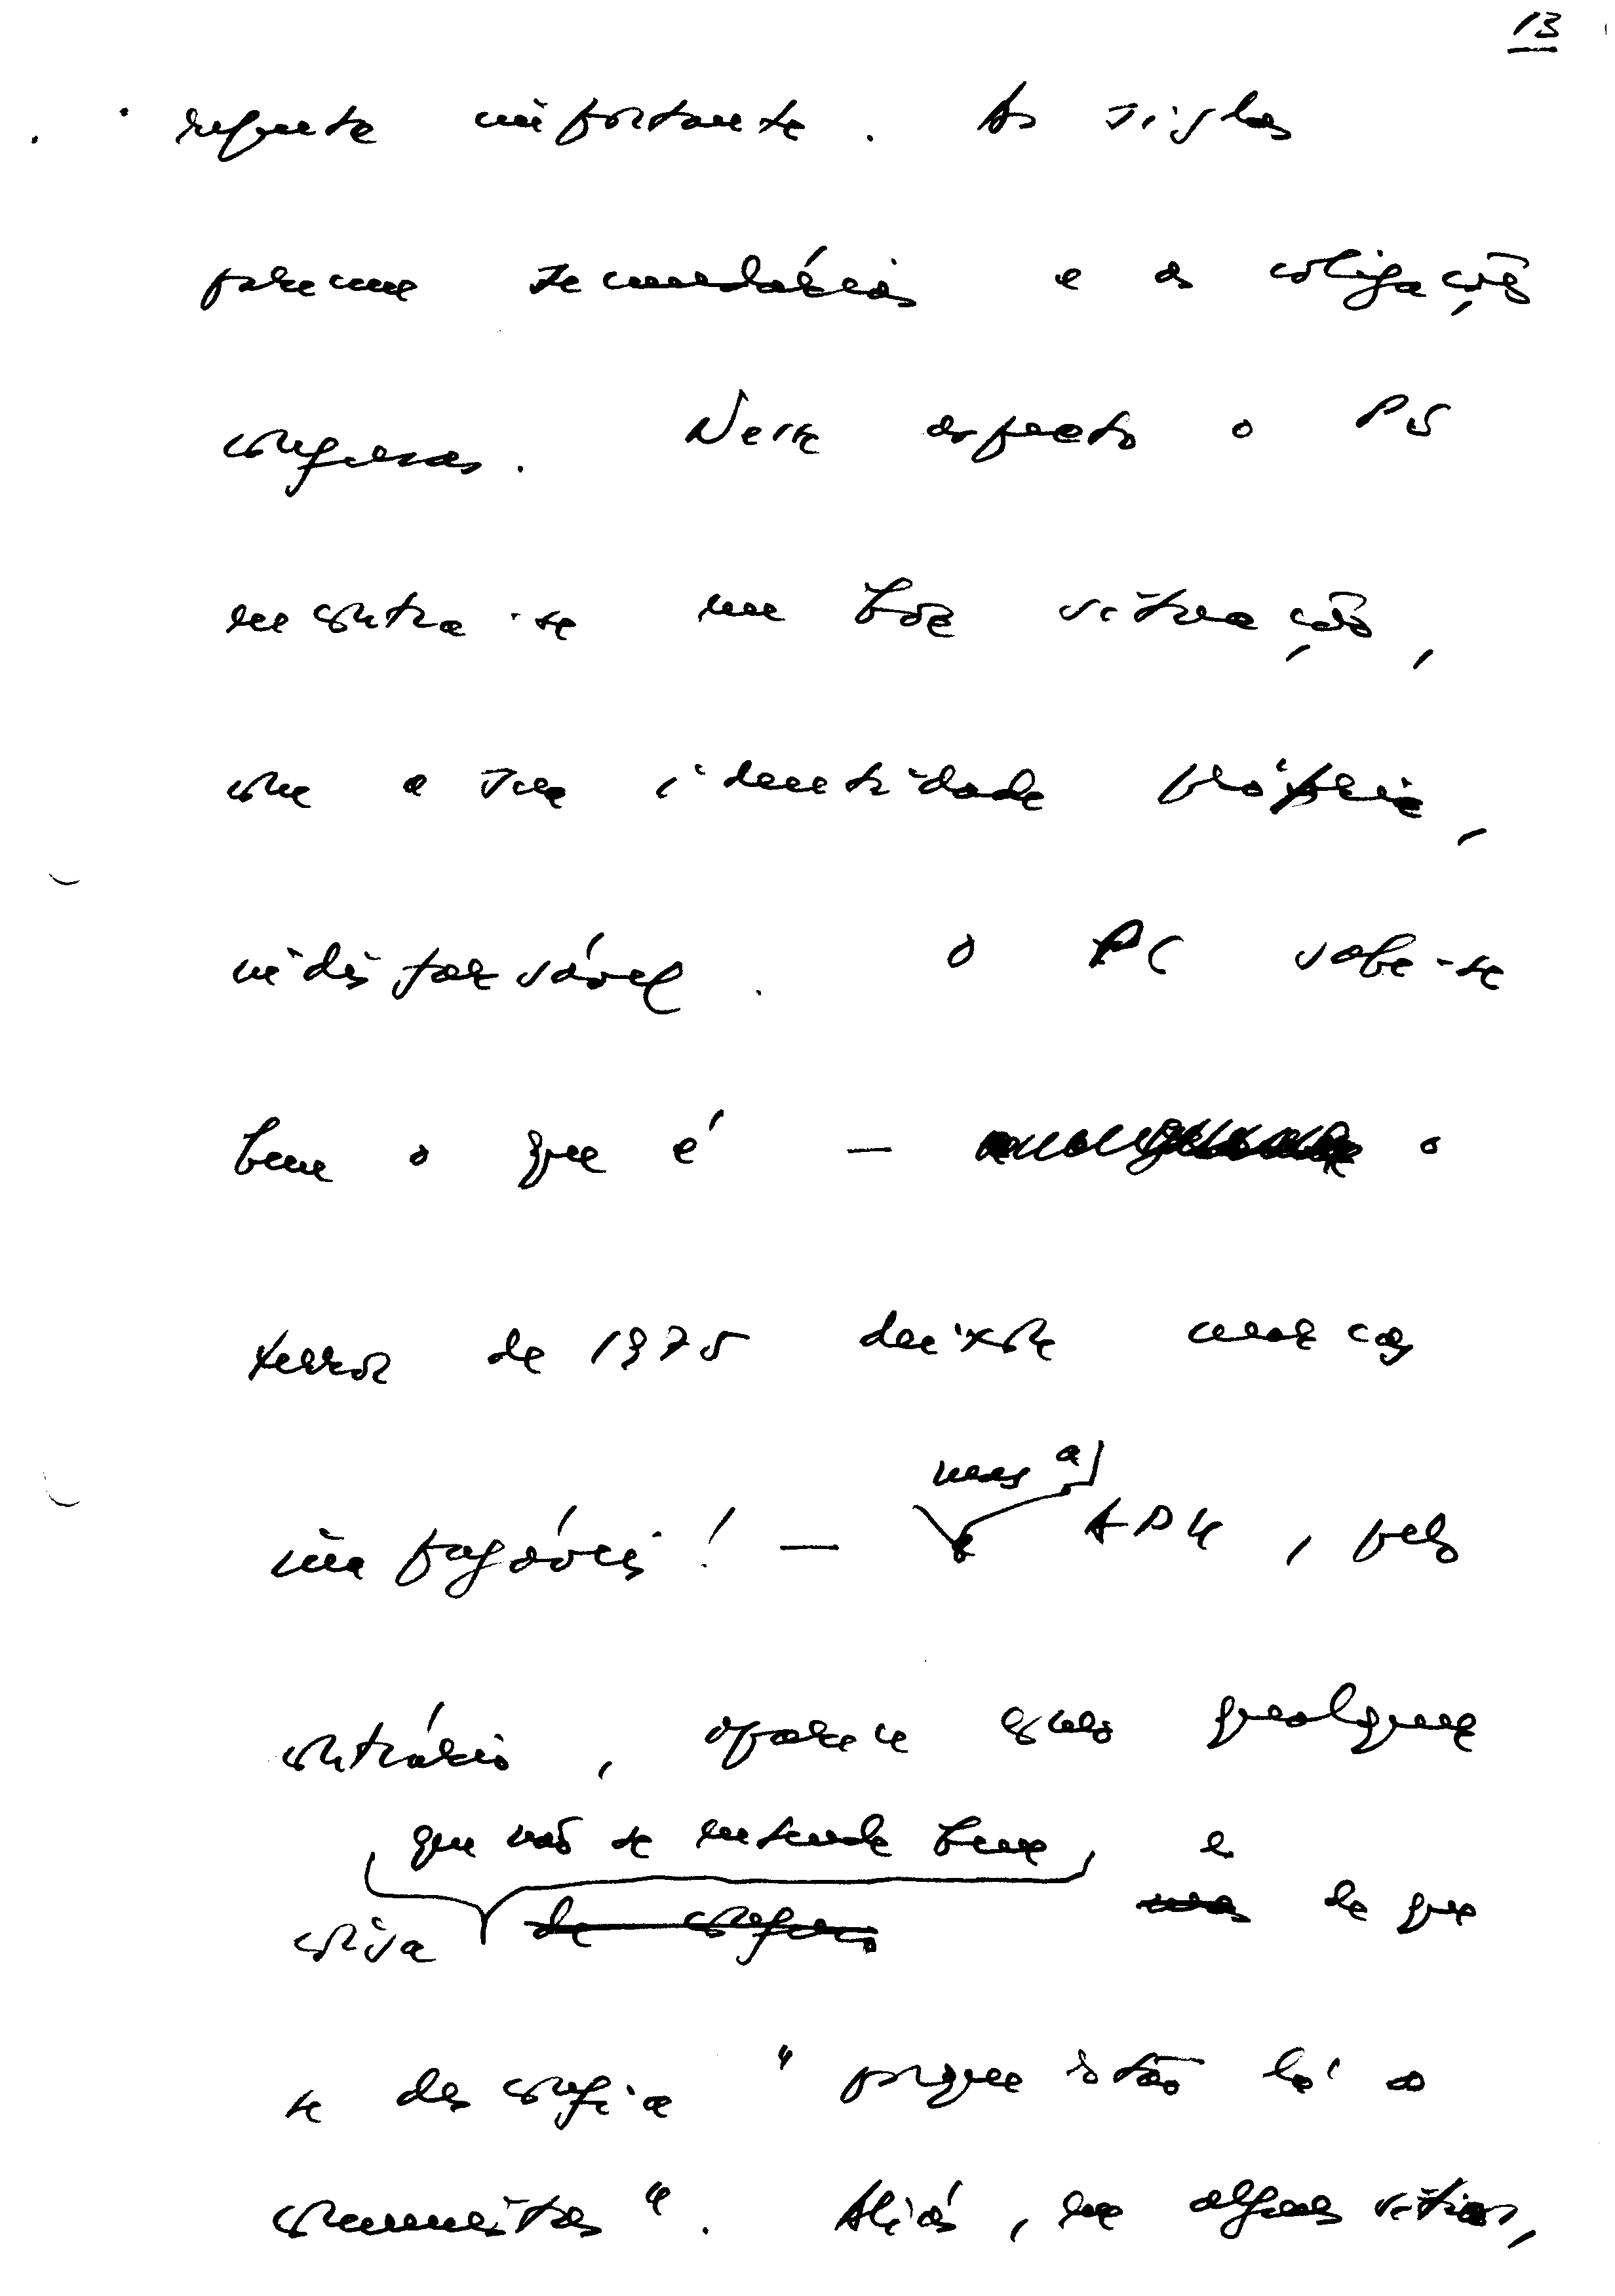 13
repente importante. As siglas
parecem secundárias e as coligações
confusas. Neste aspecto o PS
encontra-se em boa situação,
com a sua identidade própria,
indisfarsável. O PC sabe-se
bem o que é — o
terror de 1975 deixou marcas
inapagáveis! —
mas a
APU, pelo
contrário, aparece como qualquer
que não se entende bem e
coisa de confuso mas de que
se desconfia "porque estão lá os
comunistas". Aliás, em alguns sítios,